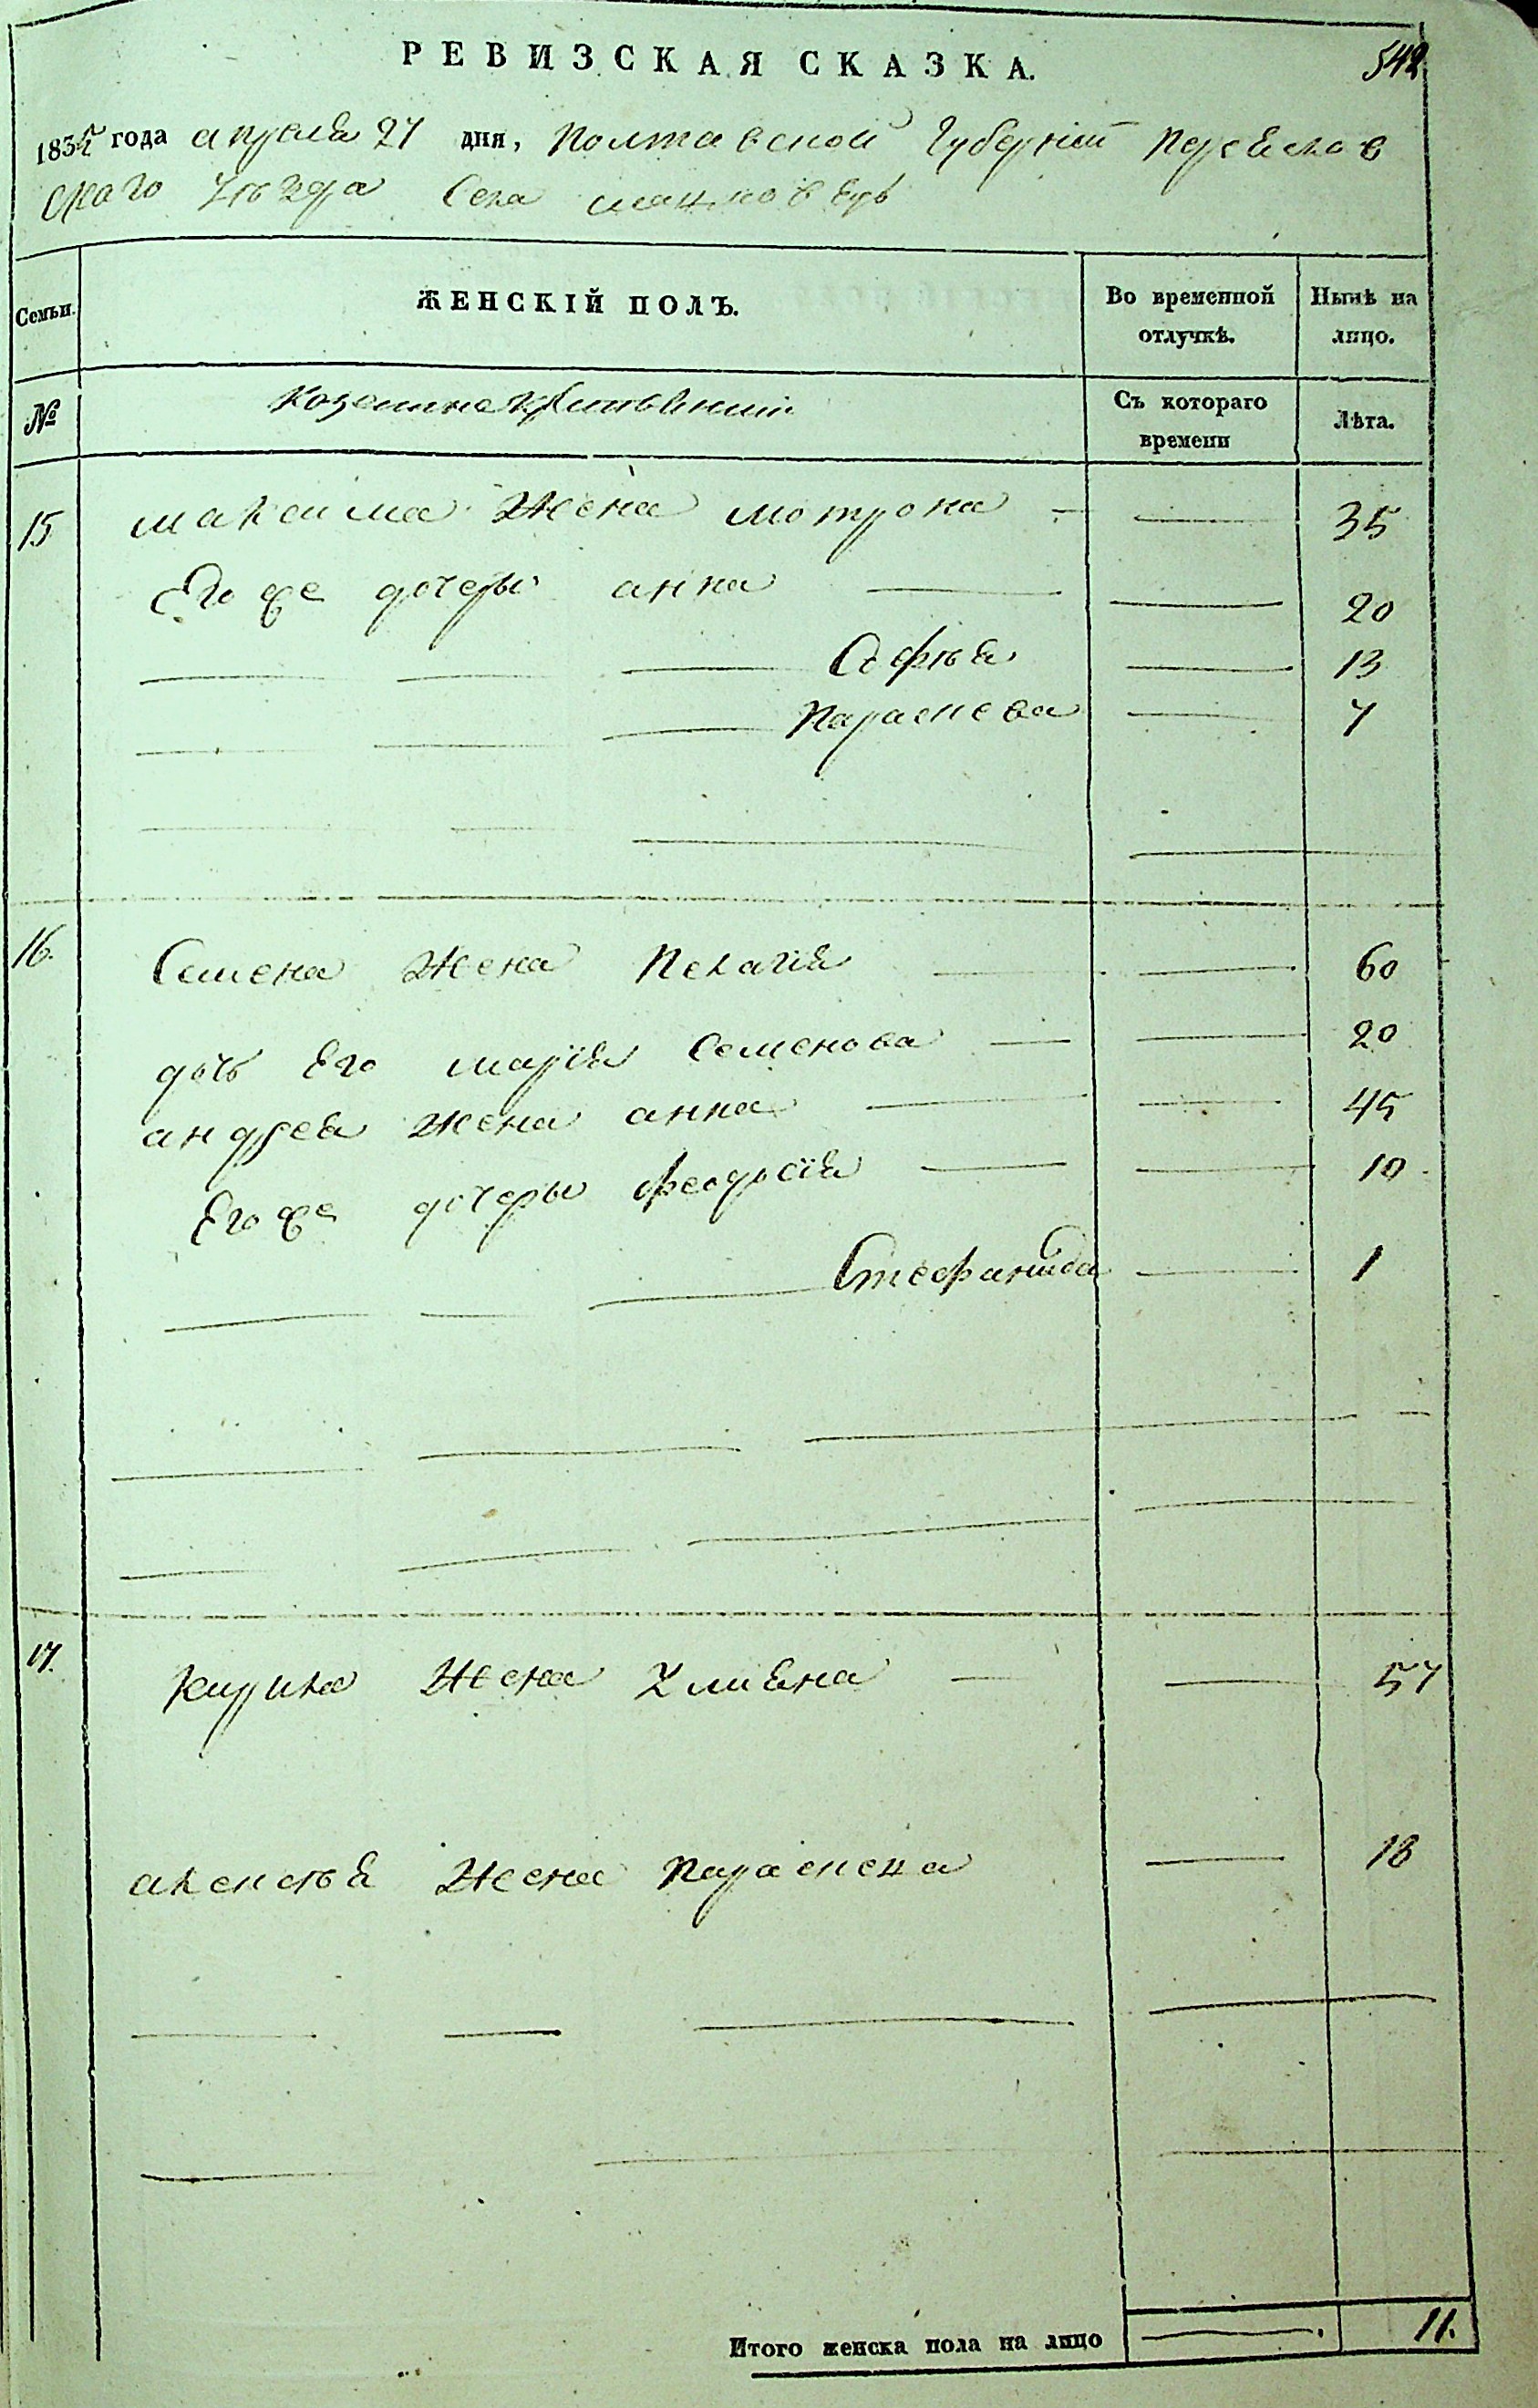 РЕВИЗСКАЯ СКАЗКА.
542
1835 года апреля 27 дня, Полтавской Губерніи Переяслов
скаго уѣзда Села
Семьи.
ЖЕНСКІЙ ПОЛЪ.
Во временной отлучкѣ.
Нынѣ на лицо.
№
Съ котораго времени
Лѣта.
15 максима жена мотрона 35
Его же дочеры анна 20
Софѣя 13
Параскева 7
16. Семена жена Пелагія 60
дочь Его марія Семенова 20
андрея жена анна 45
Его же дочеры феодосія 10
Стефанида 1
17. кирила жена Улияна 57
алексѣя жена Параскева 18
Итого женска пола на лицо 11.